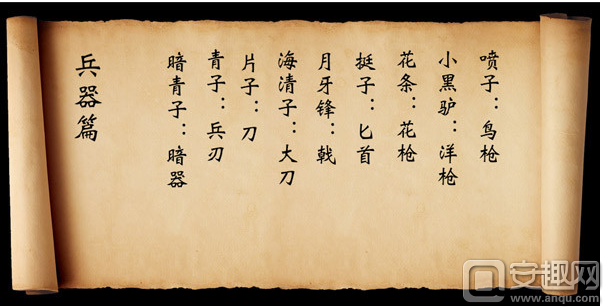 兵器篇
暗青子：暗器
青子：兵刃
片子：刀
海清子：大刀
月牙锋：戟
挺子：匕首
花条：花枪
小黑驴：洋枪
喷子：鸟枪
安趣网
www.anqu.com